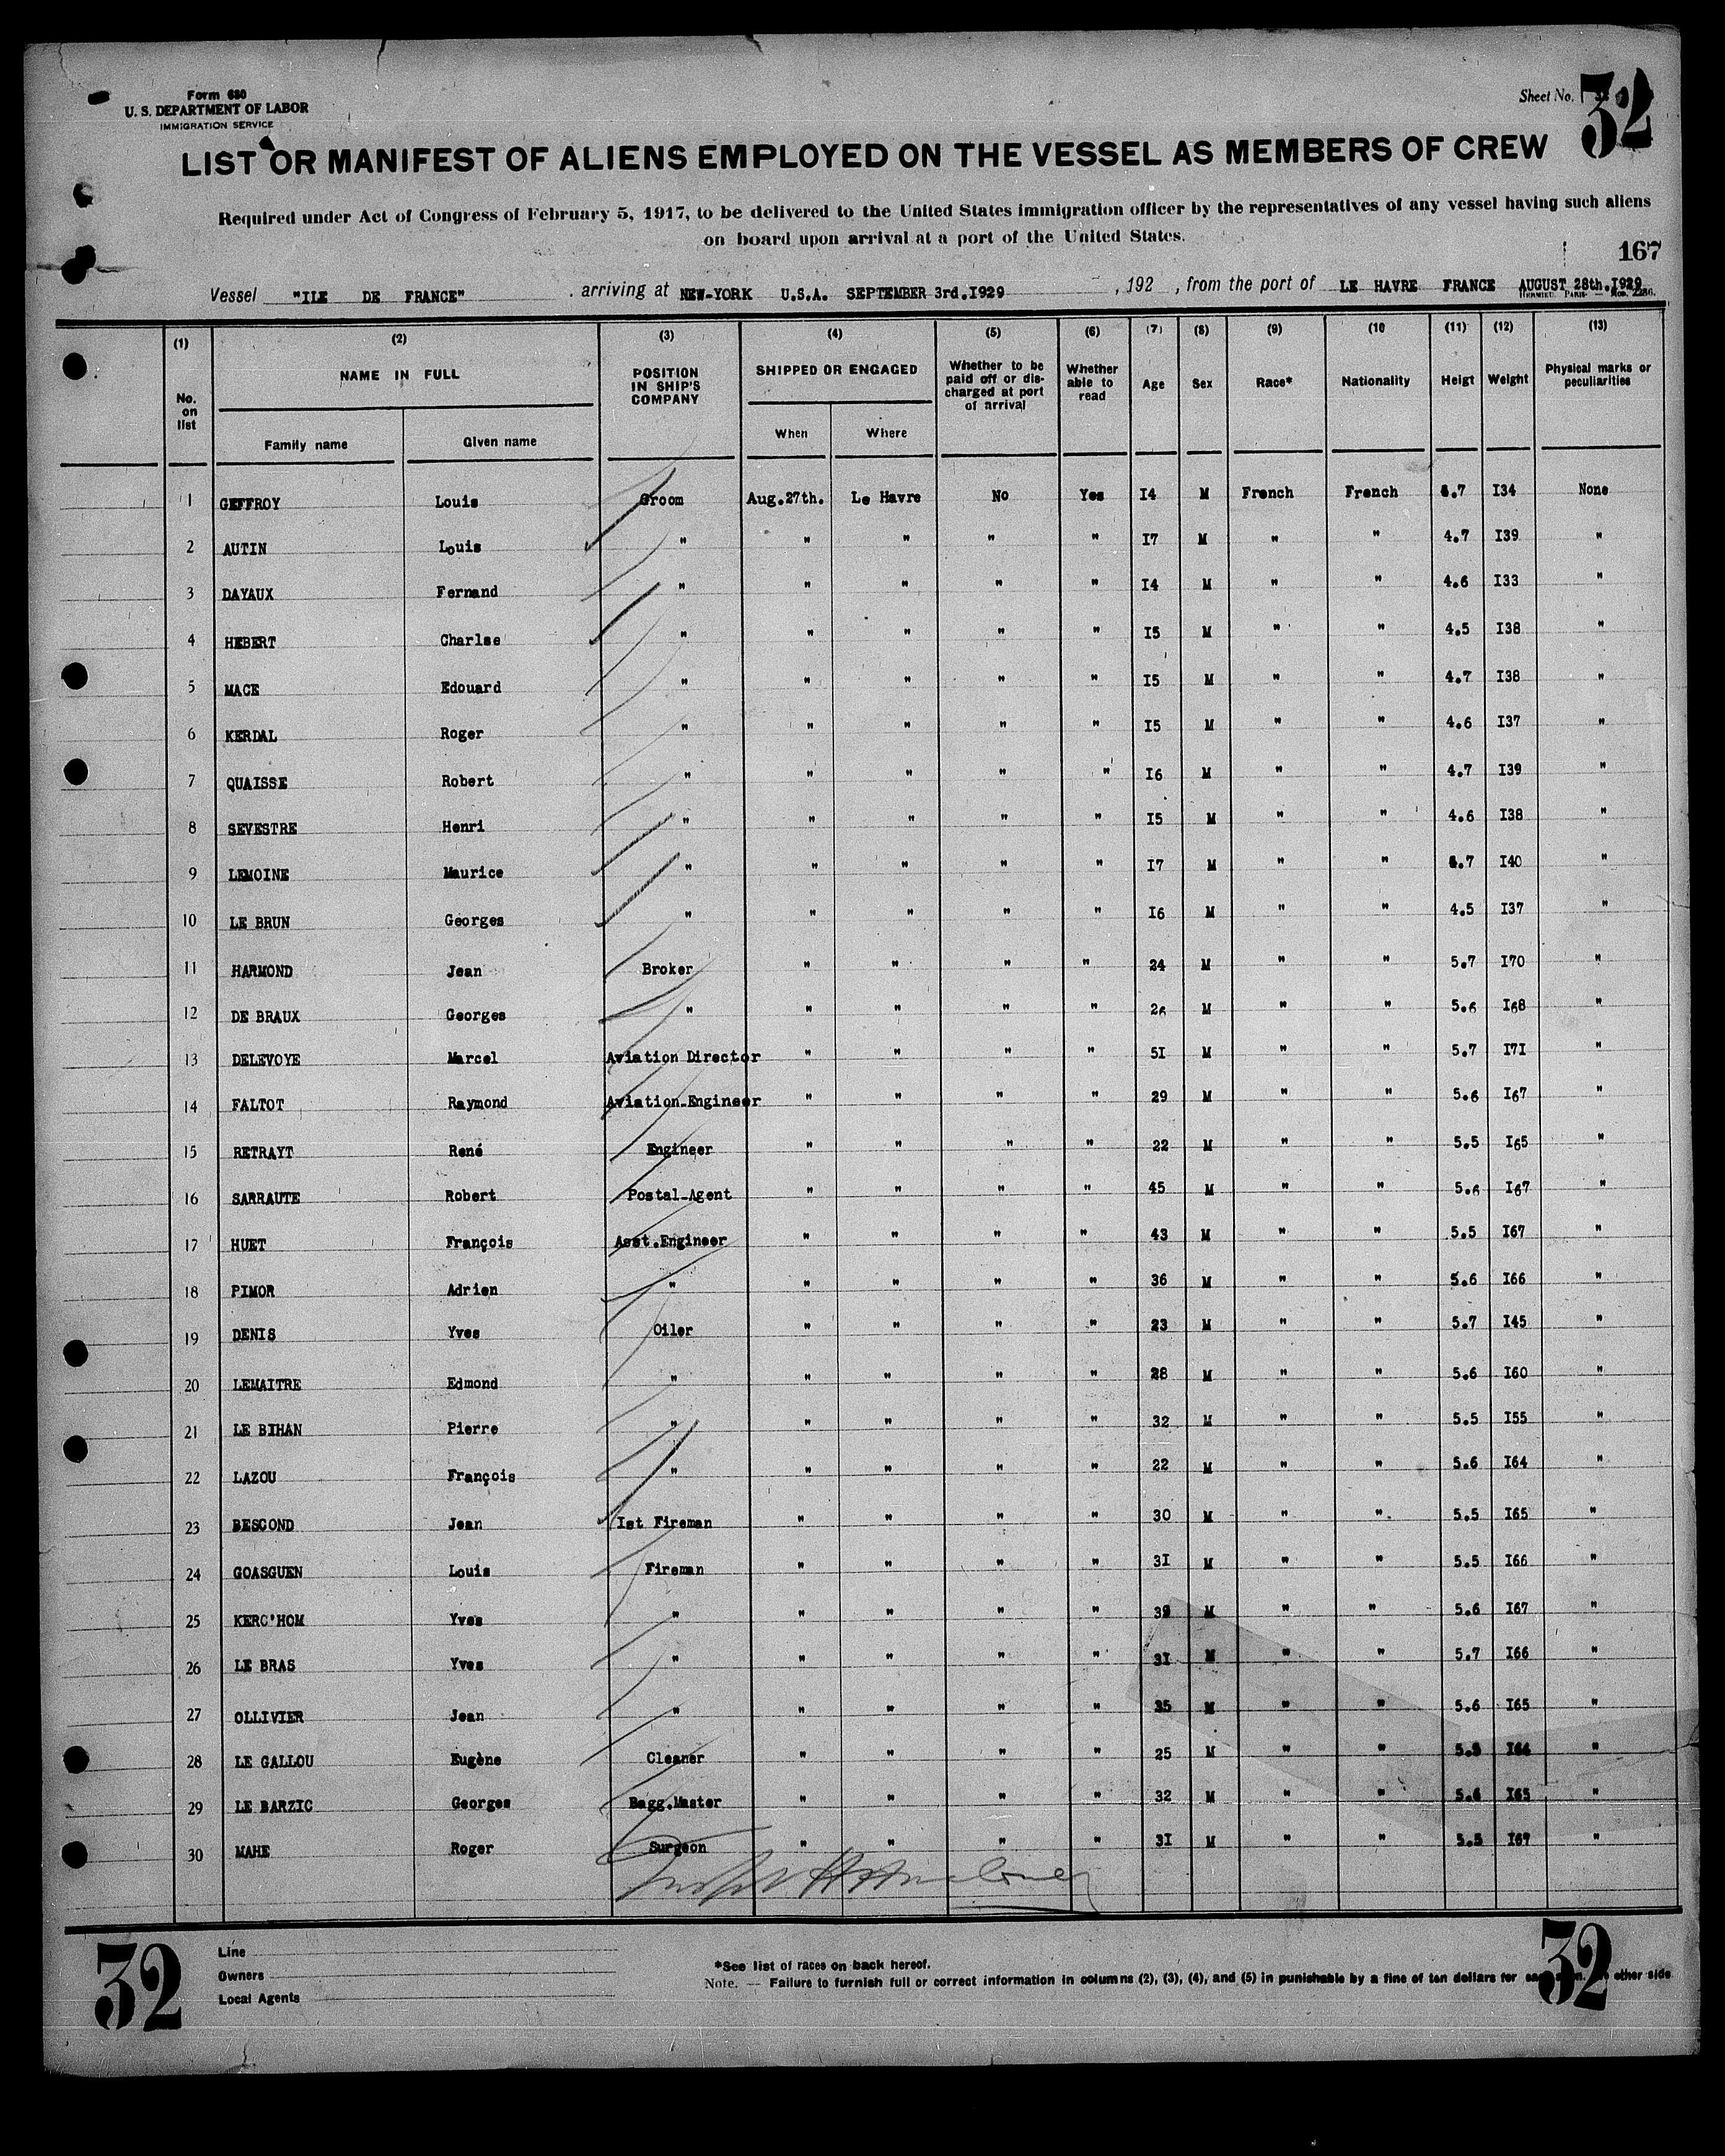 Form 680
U. S. DEPARTMENT OF LABOR
IMMIGRATION SERVICE
Sheet No.
32
LIST OR MANIFEST OF ALIENS EMPLOYED ON THE VESSEL AS MEMBERS OF CREW
Required under Act of Congress of February 5, 1917, to be delivered to the United States immigration officer by the representatives of any vessel having such aliens
on board upon arrival at a port of the United States.
167
Vessel "ILE DE FRANCE" , arriving at NEW-YORK U.S.A. SEPTEMBER 3rd.I929 , 192 , from the port of LE HAVRE FRANCE AUGUST 28th.I929
(1) (2) (3) (4) (5) (6) (7) (8) (9) (10 (11) (12) (13)
No. on list NAME IN FULL POSITION IN SHIP'S COMPANY SHIPPED OR ENGAGED Whether to be paid off or discharged at port of arrival Whether able to read Age Sex Race* Nationality Heigt Weight Physical marks or peculiarities
Family name Given name When Where
1 GEFFROY Louis Groom Aug.27th. Le Havre No Yes I4 M French French 4.7 I34 None
2 AUTIN Louis " " " " " I7 M " " 4.7 I39 "
3 DAYAUX Fernand " " " " " I4 M " " 4.6 I33 "
4 HEBERT Charlse " " " " " I5 M " " 4.5 I38 "
5 MACE Edouard " " " " " I5 M " " 4.7 I38 "
6 KERDAL Roger " " " " " I5 M " " 4.6 I37 "
7 QUAISSE Robert " " " " " I6 M " " 4.7 I39 "
8 SEVESTRE Henri " " " " " I5 M " " 4.6 I38 "
9 LEMOINE Maurice " " " " " I7 M " " 4.7 I40 "
10 LE BRUN Georges " " " " " I6 M " " 4.5 I37 "
11 HARMOND Jean Broker " " " " 24 M " " 5.7 I70 "
12 DE BRAUX Georges " " " " " 26 M " " 5.6 I68 "
13 DELEVOYE Marcel Aviation Director " " " " 5I M " " 5.7 I7I "
14 FALTOT Raymond Aviation-Engineer " " " " 29 M " " 5.6 I67 "
15 RETRAYT René Engineer " " " " 22 M " " 5.5 I65 "
16 SARRAUTE Robert Postal-Agent " " " " 45 M " " 5.6 I67 "
17 HUET François Asst.Engineer " " " " 43 M " " 5.5 I67 "
18 PIMOR Adrien " " " " " 36 M " " 5.6 I66 "
19 DENIS Yves Oiler " " " " 23 M " " 5.7 I45 "
20 LEMAITRE Edmond " " " " " 28 M " " 5.6 I60 "
21 LE BIHAN Pierre " " " " " 32 M " " 5.5 I55 "
22 LAZOU François " " " " " 22 M " " 5.6 I64 "
23 BESCOND Jean Ist Fireman " " " " 30 M " " 5.5 I65 "
24 GOASGUEN Louis Fireman " " " " 3I M " " 5.5 I66 "
25 KERC'HOM Yves " " " " " 39 M " " 5.6 I67 "
26 LE BRAS Yves " " " " " 3I M " " 5.7 I66 "
27 OLLIVIER Jean " " " " " 35 M " " 5.6 I65 "
28 LE GALLOU Eugène Cleaner " " " " 25 M " " I64 "
29 LE BARZIC Georges Bagg.Master " " " " 32 M " " 5.6 I65 "
30 MAHE Roger Surgeon " " " " 3I M " " 5.5 I67 "
32
Line
Owners
Local Agents
*See list of races on back hereof.
Note. — Failure to furnish full or correct information in columns (2), (3), (4), and (5) in punishable by a fine of ten dollars for other side
32